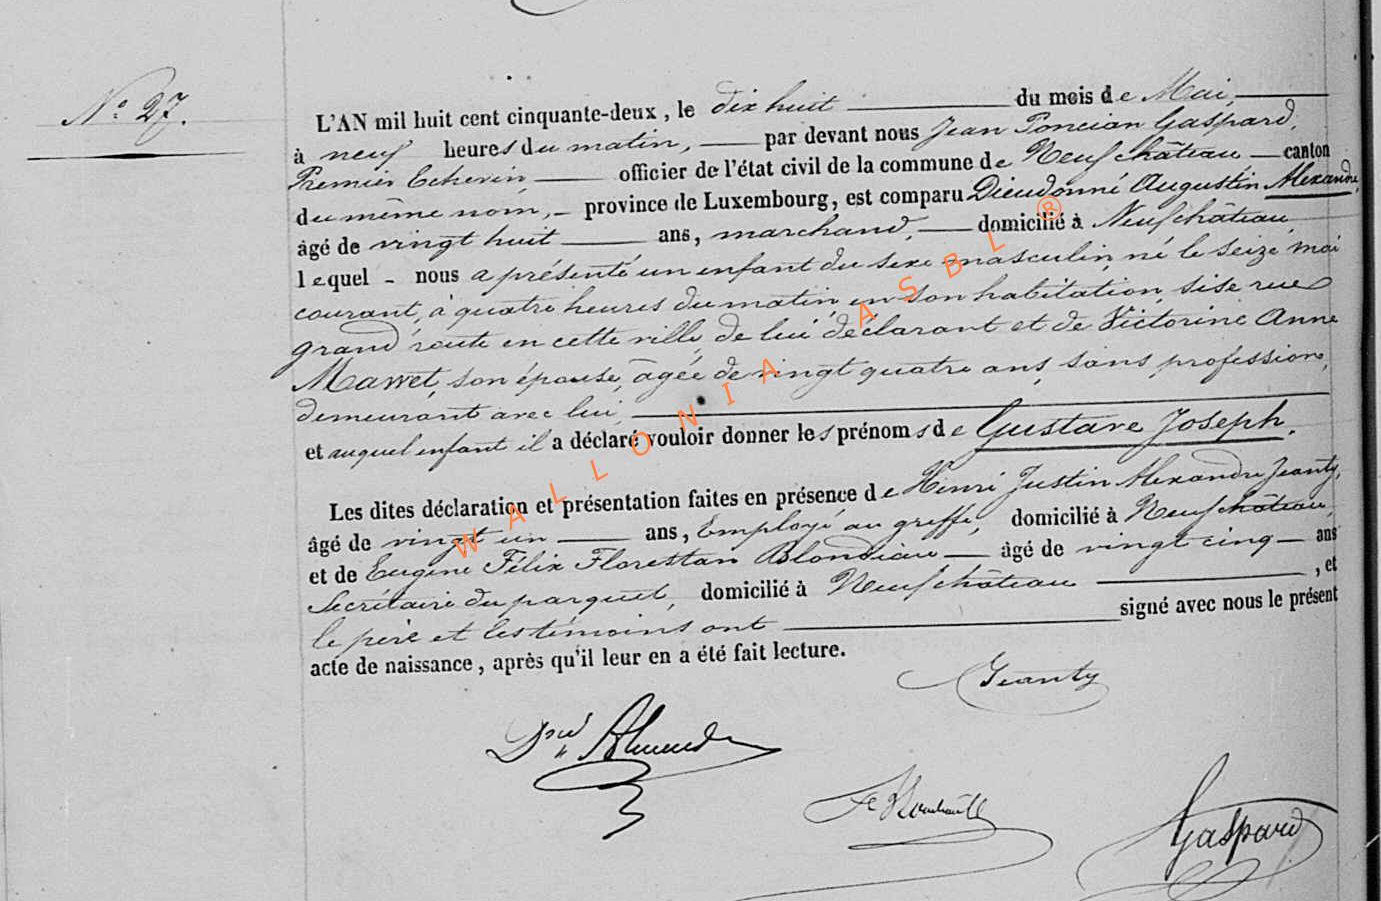 N° 27.
L'AN mil huit cent cinquante-deux, le dix huit du mois de Mai,
à neuf heures du matin, par devant nous Jean Poncian Gaspard,
Premier Echevin officier de l'état civil de la commune de Neufchâteau canton
du même nom, province de Luxembourg, est comparu Dieudonné Augustin Alexandre,
âgé de vingt huit ans, marchand, domicilié à Neufchâteau,
lequel nous a présenté un enfant du sexe masculin, né le seize mai
courant, à quatre heures du matin, en son habitation, sise rue
grand'route en cette ville, de lui déclarant et de Victorine Anne
Mawet, son épouse, âgée de vingt quatre ans, sans profession,
demeurant avec lui
et auquel enfant il a déclaré vouloir donner les prénoms de Gustave Joseph.
Les dites déclaration et présentation faites en présence de Henri Justin Alexandre Jeanty,
âgé de vingt un ans, Employé au greffe, domicilié à Neufchâteau,
et de Eugène Félix Florestan Blondiau âgé de vingt cinq ans
Secrétaire du parquet, domicilié à Neufchâteau , et
le père et les témoins ont signé avec nous le présent
acte de naissance, après qu'il leur en a été fait lecture.
Jeanty
Gaspard
WALLONIA ASBL ®